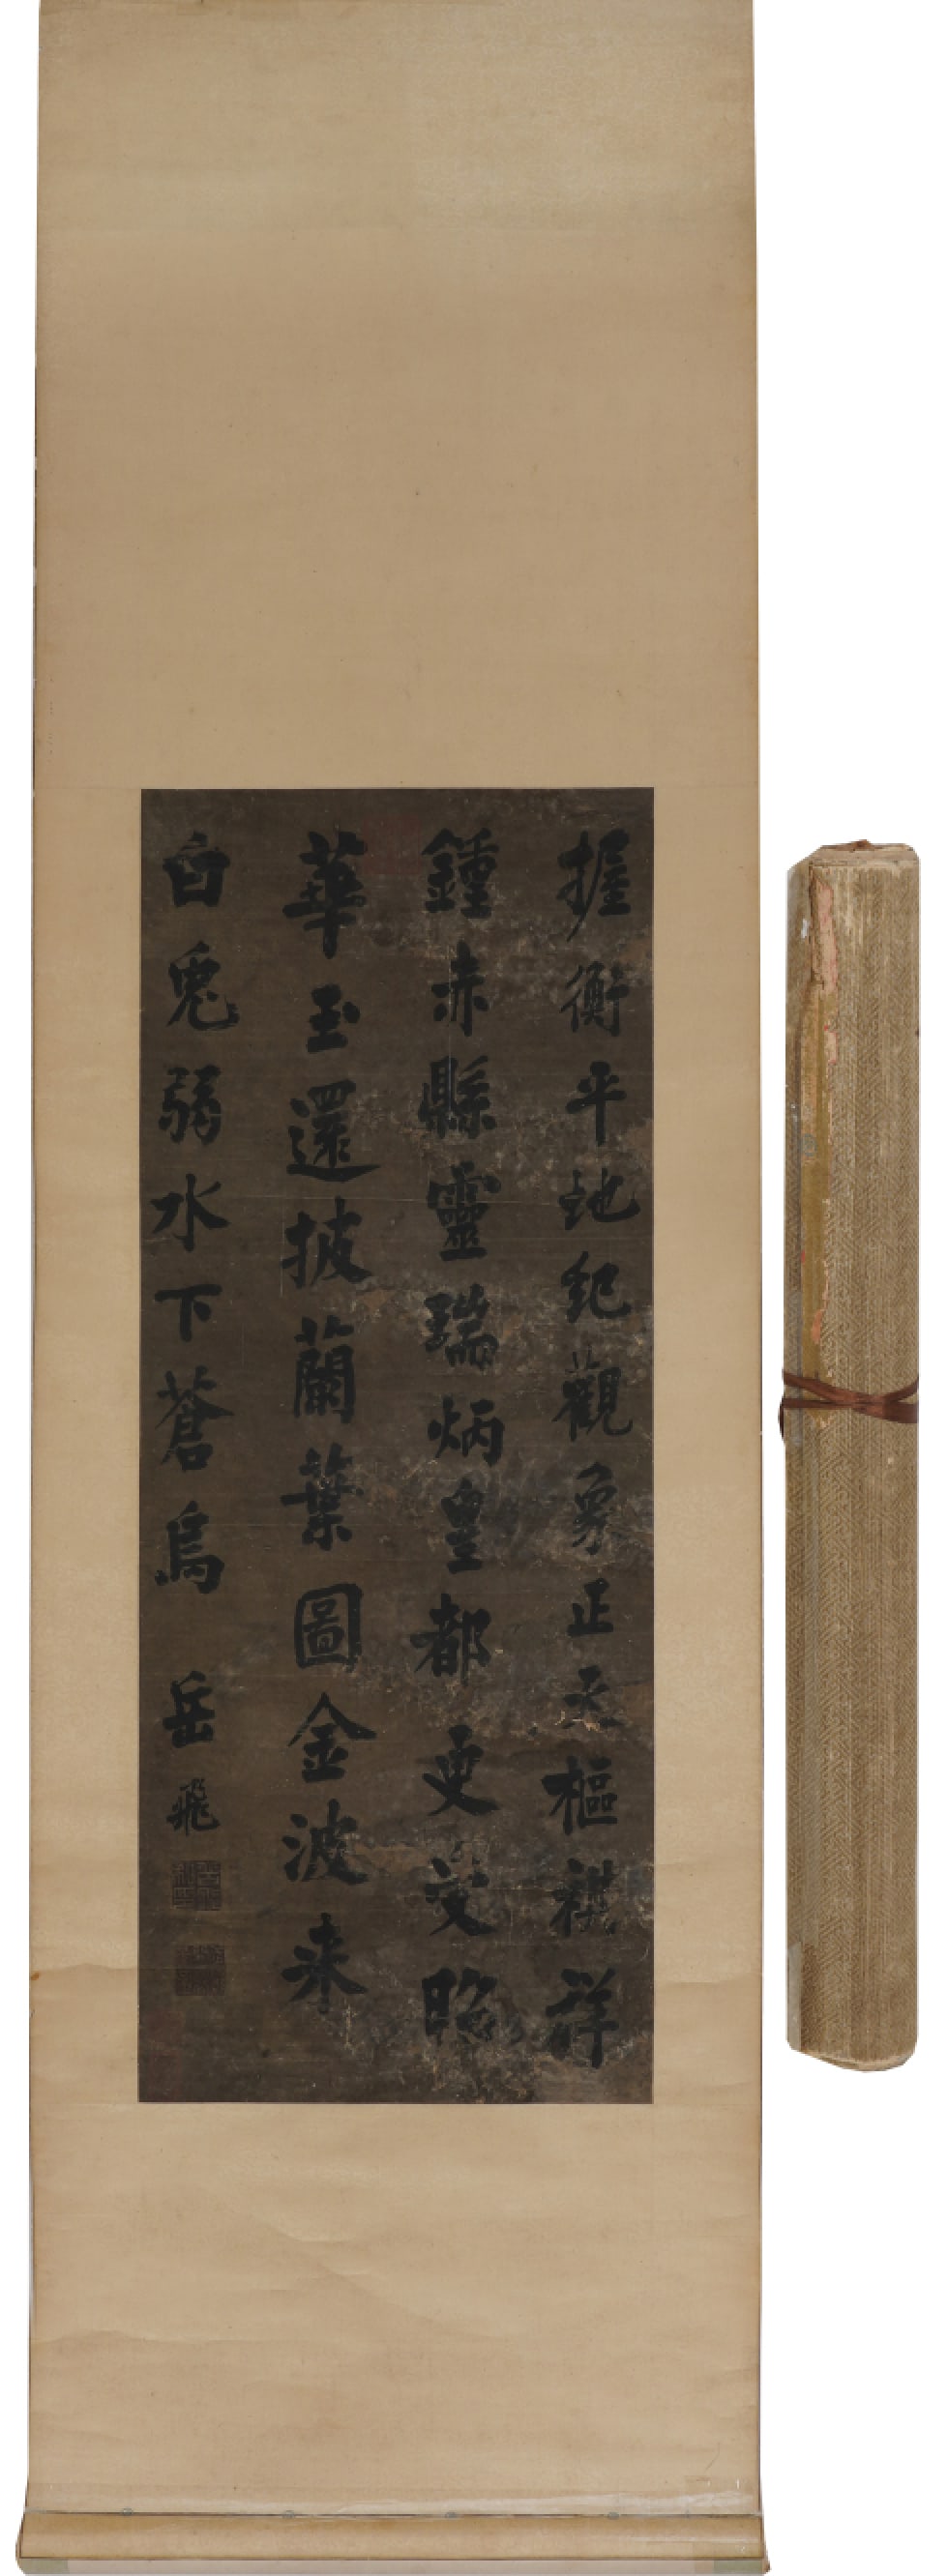 握衡平地紀觀象正天樞祺祥
鍾赤縣靈瑞炳皇都更受昭
華玉還披蘭葉圖金波來
白兎弱水下蒼烏
岳飛